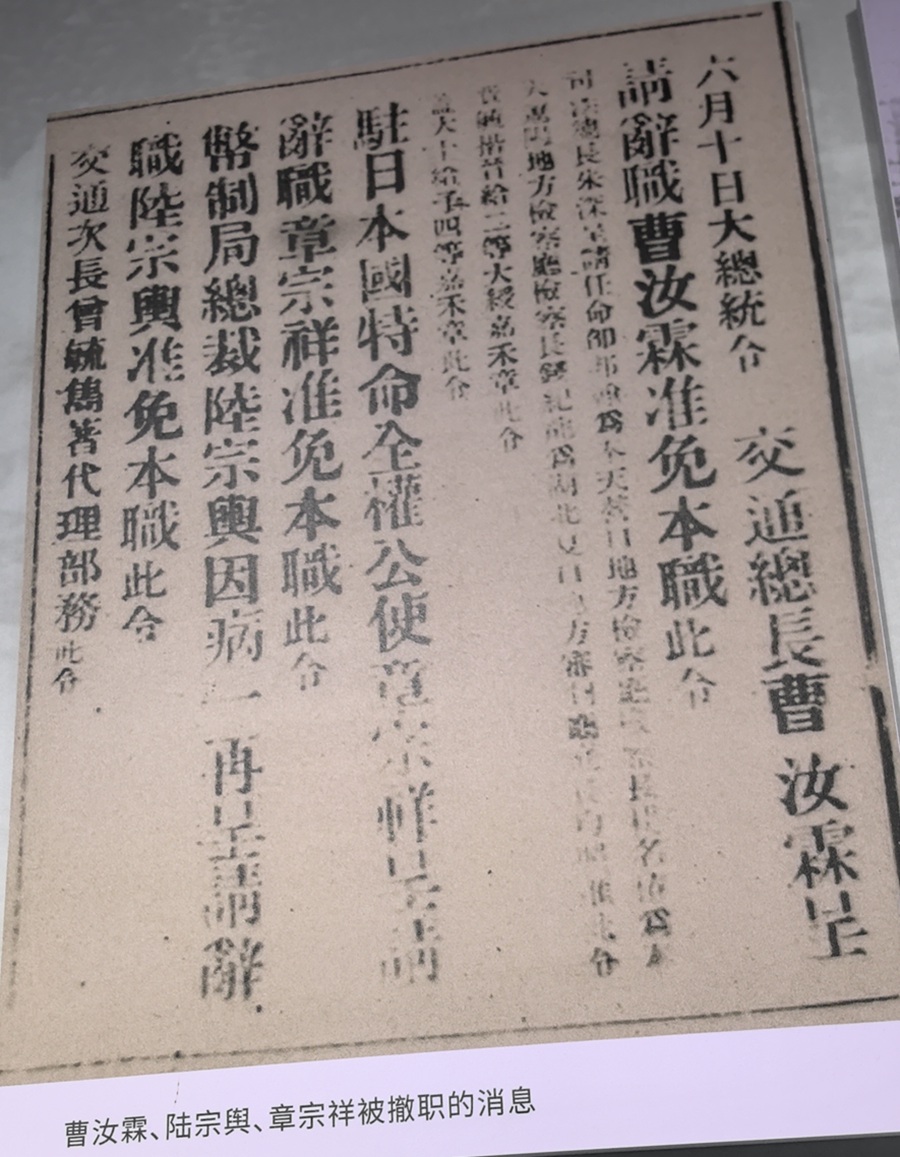 六月十日大總統令　交通總長曹汝霖呈
請辭職曹汝霖准免本職此令
司法總長朱深呈請任命
地方檢察廳檢察長
給二等大綬嘉禾章此令
給予四等嘉禾章此令
駐日本國特命全權公使章宗祥呈請
辭職章宗祥准免本職此令
幣制局總裁陸宗輿因病一再呈請辭
職陸宗輿准免本職此令
交通次長曾毓雋著代理部務此令
曹汝霖、陆宗舆、章宗祥被撤职的消息